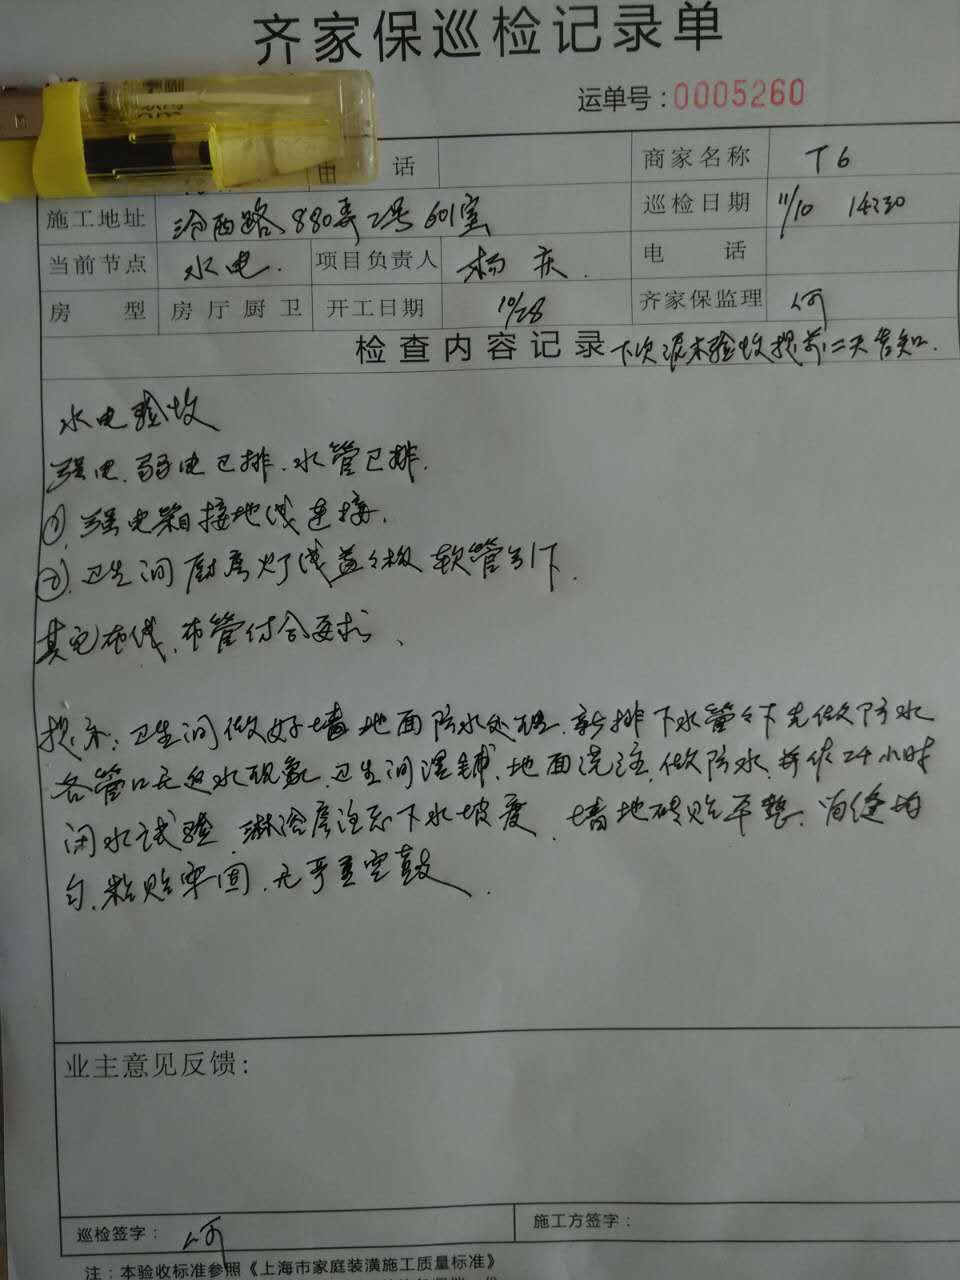 齐家保巡检记录单
运单号:0005260
话 商家名称 T6
施工地址 路880弄2号601室 巡检日期 11/10 14:30
当前节点 水电. 项目负责人 杨庆. 电 话
房 型 房厅厨卫 开工日期 10/28 齐家保监理 何
检查内容记录 下次泥木验收提前二天告知.
水电验收
强电.弱电已排.水管已排.
①.强电箱接地线连接.
②.卫生间厨房灯线 软管引下.
其它布线.布管符合要求、
提示:卫生间做好墙地面防水处理.新排下水管 下先做防水
各管口无返水现象.卫生间湿铺.地面浇注.做防水.并作24小时
闭水试验.淋浴房注意下水坡度.墙地砖贴平整.留缝均
匀.粘贴牢固.无严重空鼓.
业主意见反馈:
巡检签字: 何 施工方签字:
注:本验收标准参照《上海市家庭装潢施工质量标准》